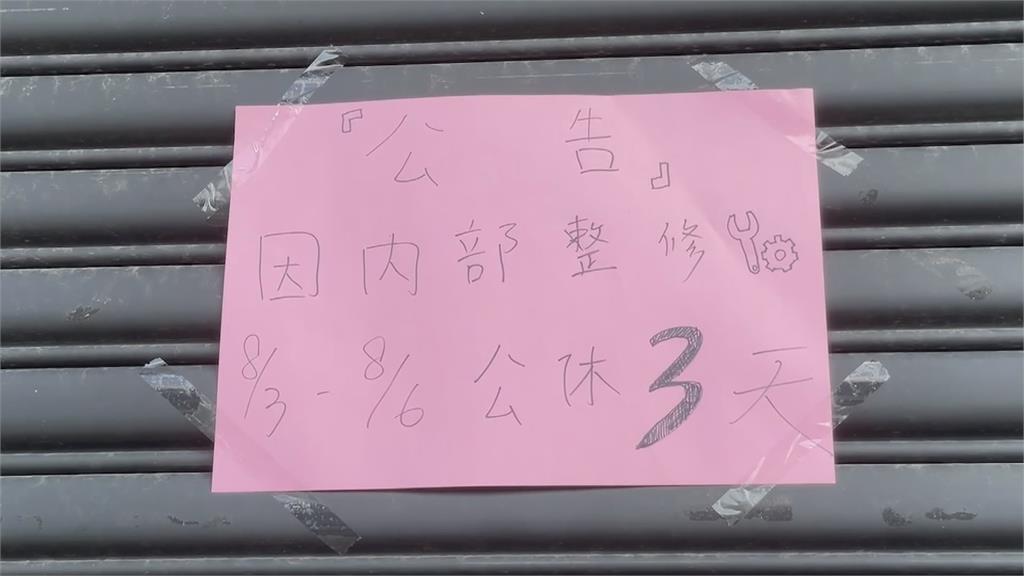 『公告』
因內部整修
8/3-8/6公休3天